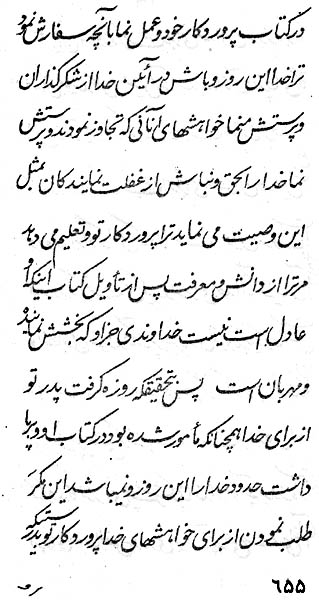 در کتاب پروردکار خود و عمل نما بآنچه سفارش نمود
ترا خدا این روز و باش در آئین خدا از شکر گذاران
و پرستش منما خواهشهای آنانی که تجاوز نمودند و پرستش
نما خدا را بحق و نباش از غفلت نمایندکان بمثل
این وصیت می نماید ترا پروردکار تو و تعلیم می دهد
مر ترا از دانش و معرفت پس از تأویل کتاب اینکه او
عادل است نیست خداوندی جز او که بخشش نماینده
و مهربان است پس بتحقیقکه روزه کرفت پدر تو
از برای خدا همچنانکه مأمور شده بود در کتاب او و برپا
داشت حدود خدا را این روز و نمیباشد این مکر
طلب نمودن از برای خواهشهای خدا پروردکار تو بدرستیکه
۶۵۵